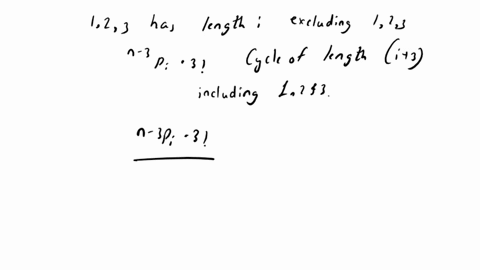 1,2,3 has length i excluding 1,2,3
n-3 P i · 3! Cycle of length (i+3)
including 1,2 & 3.
n-3 P i · 3!